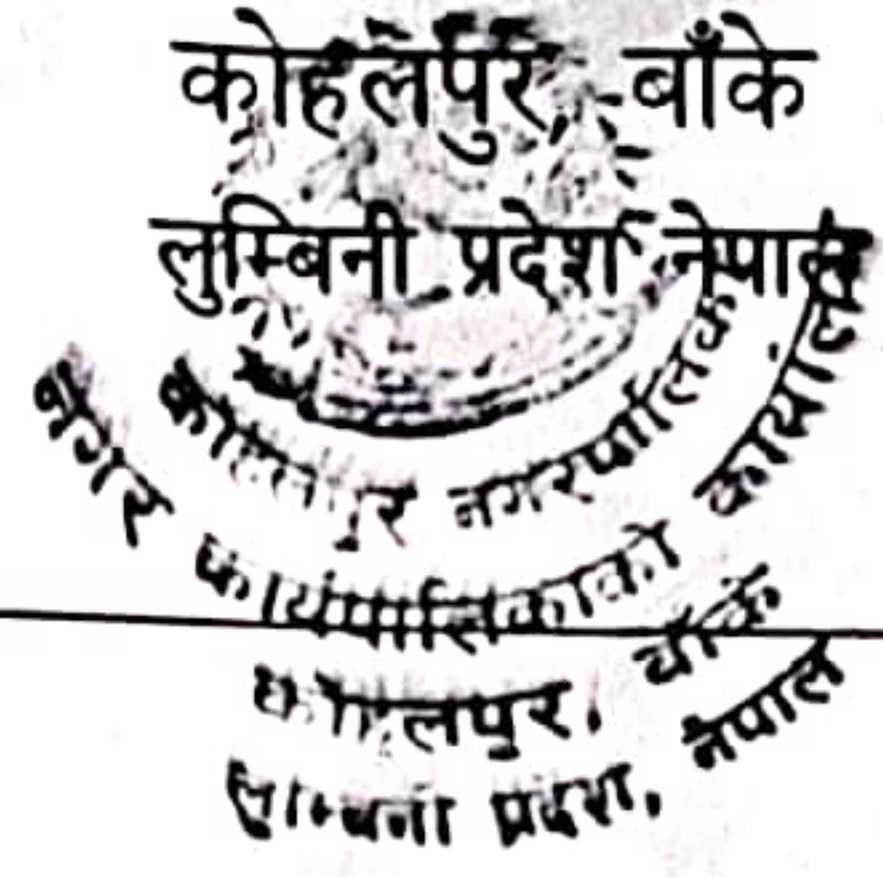 कोहलपुर, बाँके
लुम्बिनी प्रदेश नेपाल
कोहलपुर नगरपालिका
नगर कार्यपालिकाको कार्यालय
कोहलपुर, बाँके
लुम्बिनी प्रदेश, नेपाल